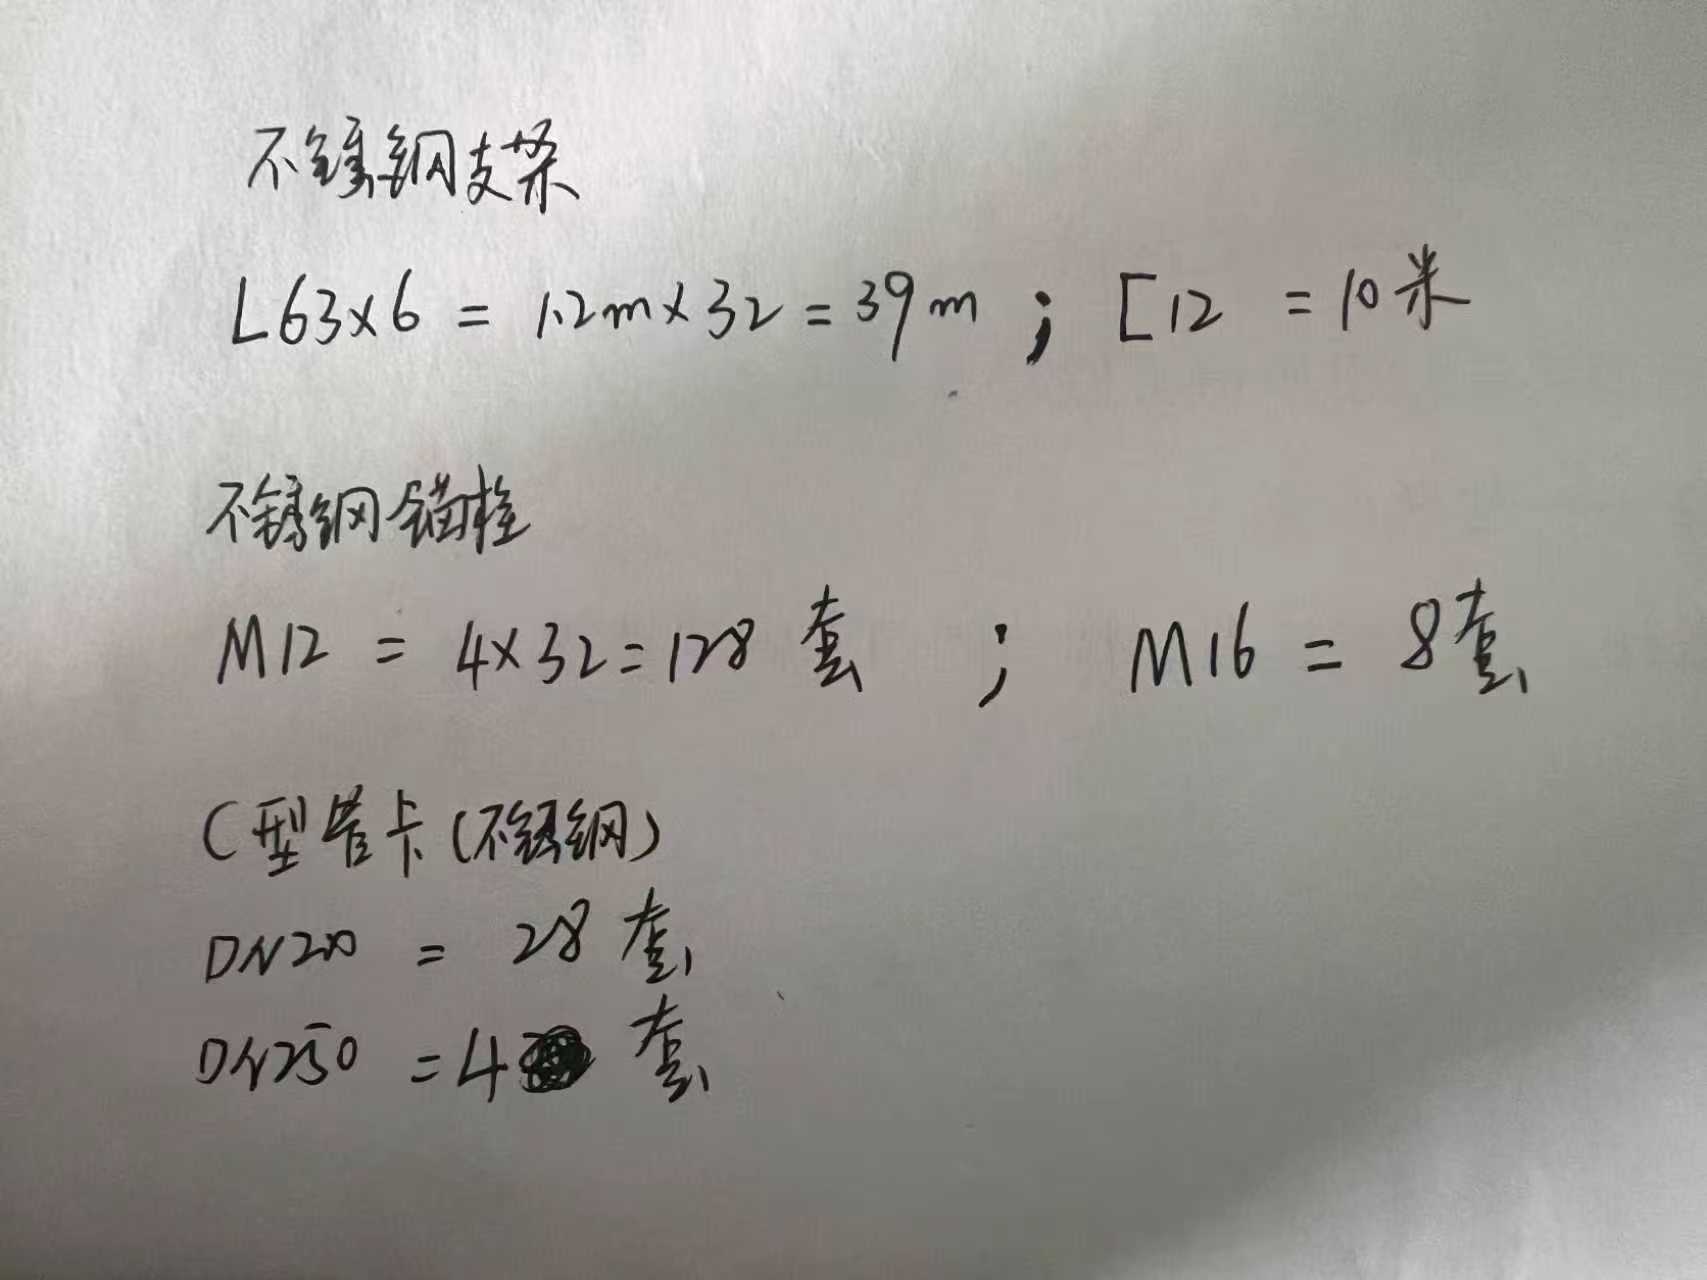 不锈钢支架
L63×6 = 1.2m×32=39m ; [12 =10米
不锈钢锚栓
M12 = 4×32=128套 ; M16 = 8套
C型管卡(不锈钢)
DN200 = 28套
DN250 =4 套